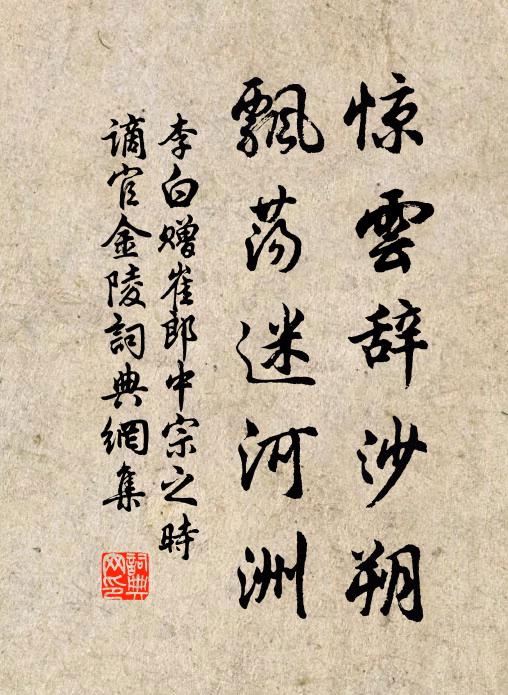 惊雲辞沙朔
飄荡迷河洲
李白赠崔郎中宗之時
谪官金陵詞典網集
詞典网印